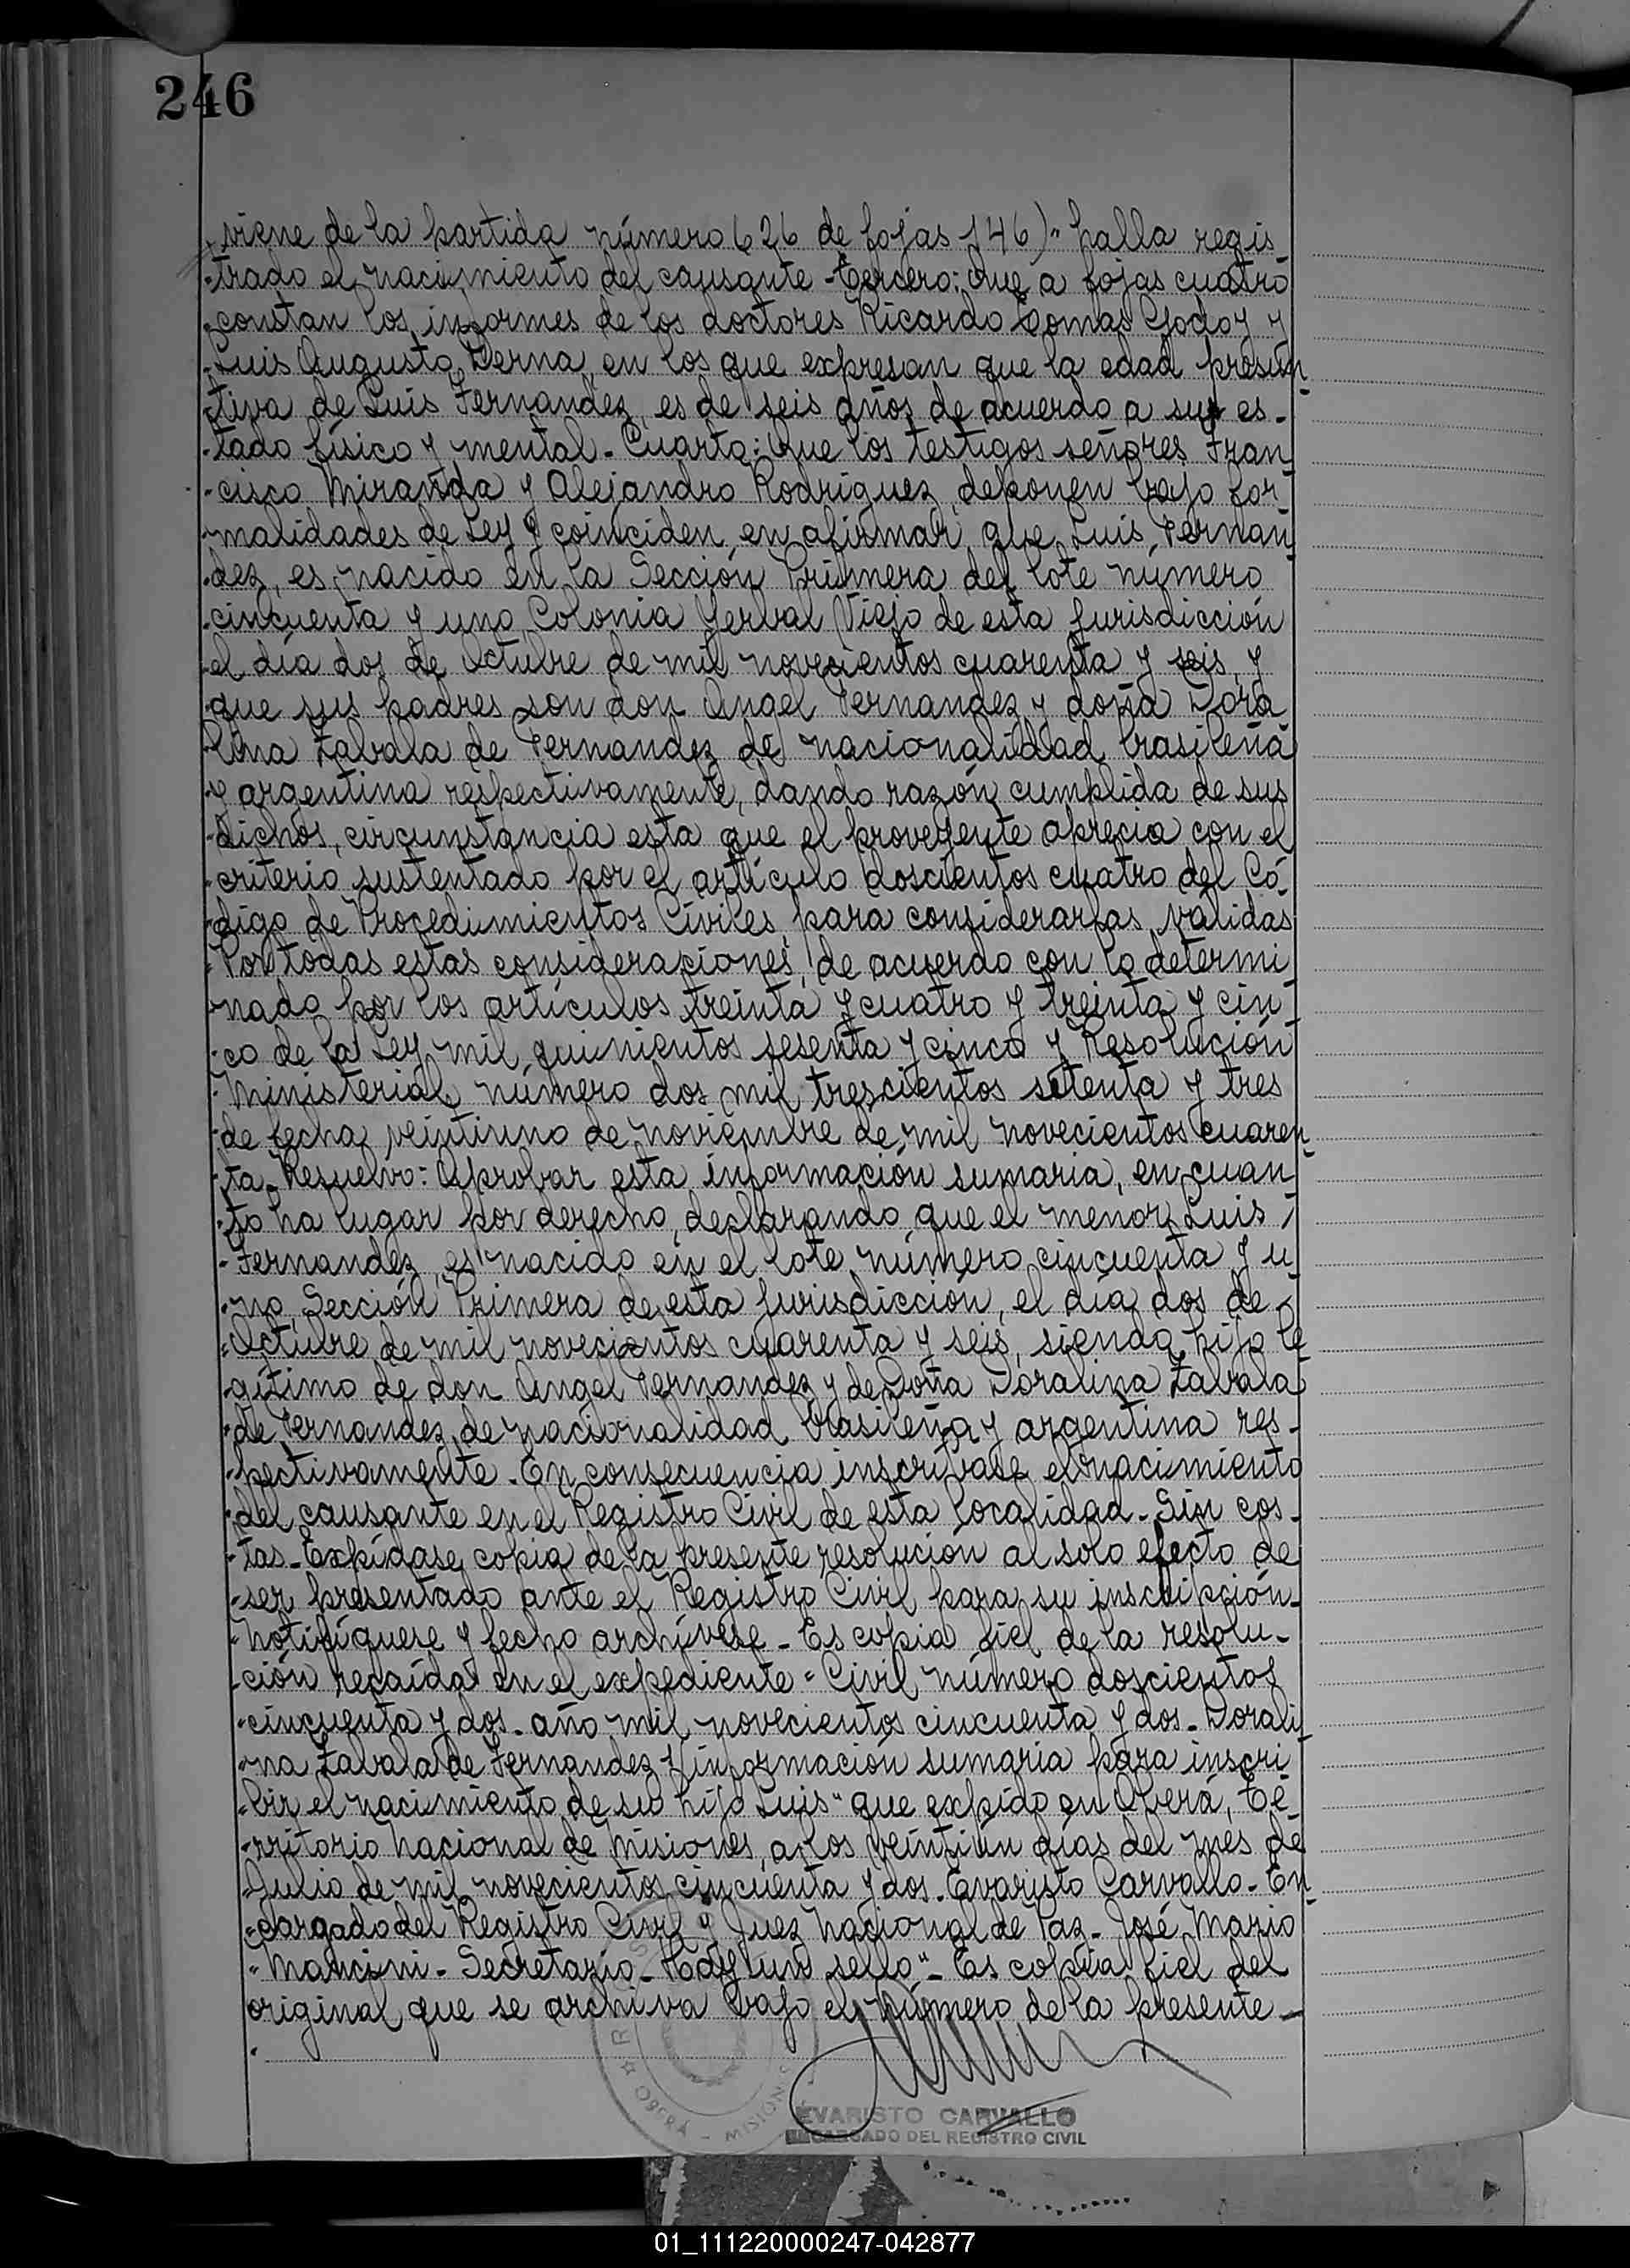 246
viene de la partida número 626 de fojas 146)" halla regis-
"trado el nacimiento del causante - Tercero: Que a fojas cuatro
"constan los informes de los doctores Ricardo Tomas Godoy y
"Luis Augusto Derna, en los que expresan que la edad presun-
"tiva de Luis Fernandez, es de seis años de acuerdo a su es-
"tado físico y mental - Cuarto: Que los testigos señores Fran-
"cisco Miranda y Alejandro Rodriguez, deponen bajo for-
"malidades de Ley y coinciden en afirmar que Luis Fernan-
"dez, es nacido en la Sección Primera del lote numero
"cincuenta y uno Colonia Yerbal Viejo de esta Jurisdicción
"el día dos de Octubre de mil novecientos cuarenta y seis, y
"que sus padres son don Angel Fernandez y doña Dora-
"lina Zabala de Fernandez de nacionalidad brasileña
"y argentina respectivamente, dando razón cumplida de sus
"dichos, circunstancia esta que el proveyente aprecia con el
"criterio sustentado por el artículo doscientos cuatro del Có-
"digo de Procedimientos Civiles, para considerarlas válidas
"Por todas estas consideraciones, de acuerdo con lo determi
"nado por los artículos treinta y cuatro y treinta y cin-
"co de la Ley mil quinientos sesenta y cinco y Resolución
"Ministerial número dos mil trescientos setenta y tres
"de fecha veintiuno de noviembre de mil novecientos cuaren-
"ta - Resuelvo: Aprobar esta información sumaria, en cuan-
"to ha lugar por derecho, declarando que el menor Luis
"Fernandez, es nacido en el lote número cincuenta y u-
"no, Sección Primera de esta Jurisdicción, el día dos de
"Octubre de mil novecientos cuarenta y seis, siendo hijo le-
"gítimo de don Angel Fernandez y de Doña Doralina Zabala
"de Fernandez, de nacionalidad brasileña y argentina res-
"pectivamente - En consecuencia inscríbase el nacimiento
"del causante en el Registro Civil de esta localidad - Sin cos-
"tas - Expídase copia de la presente resolución al solo efecto de
"ser presentado ante el Registro Civil para su inscripción -
"Notifíquese y fecho archívese - Es copia fiel de la resolu-
"ción recaída en el expediente = Civil número doscientos
"cincuenta y dos - año mil novecientos cincuenta y dos - Dorali-
"na Zabala de Fernandez s/información sumaria para inscri
"bir el nacimiento de su hijo Luis" que expido en Oberá, Te-
"rritorio Nacional de Misiones, a los veintiún días del mes de
"Julio de mil novecientos cincuenta y dos - Evaristo Carvallo - En-
"cargado del Registro Civil y Juez Nacional de Paz - José Mario
"Mancini - Secretario - Hay un sello" - Es copia fiel del
original que se archiva bajo el número de la presente -
OBERÁ - MISIONES
EVARISTO CARVALLO
ENCARGADO DEL REGISTRO CIVIL
01_111220000247-042877